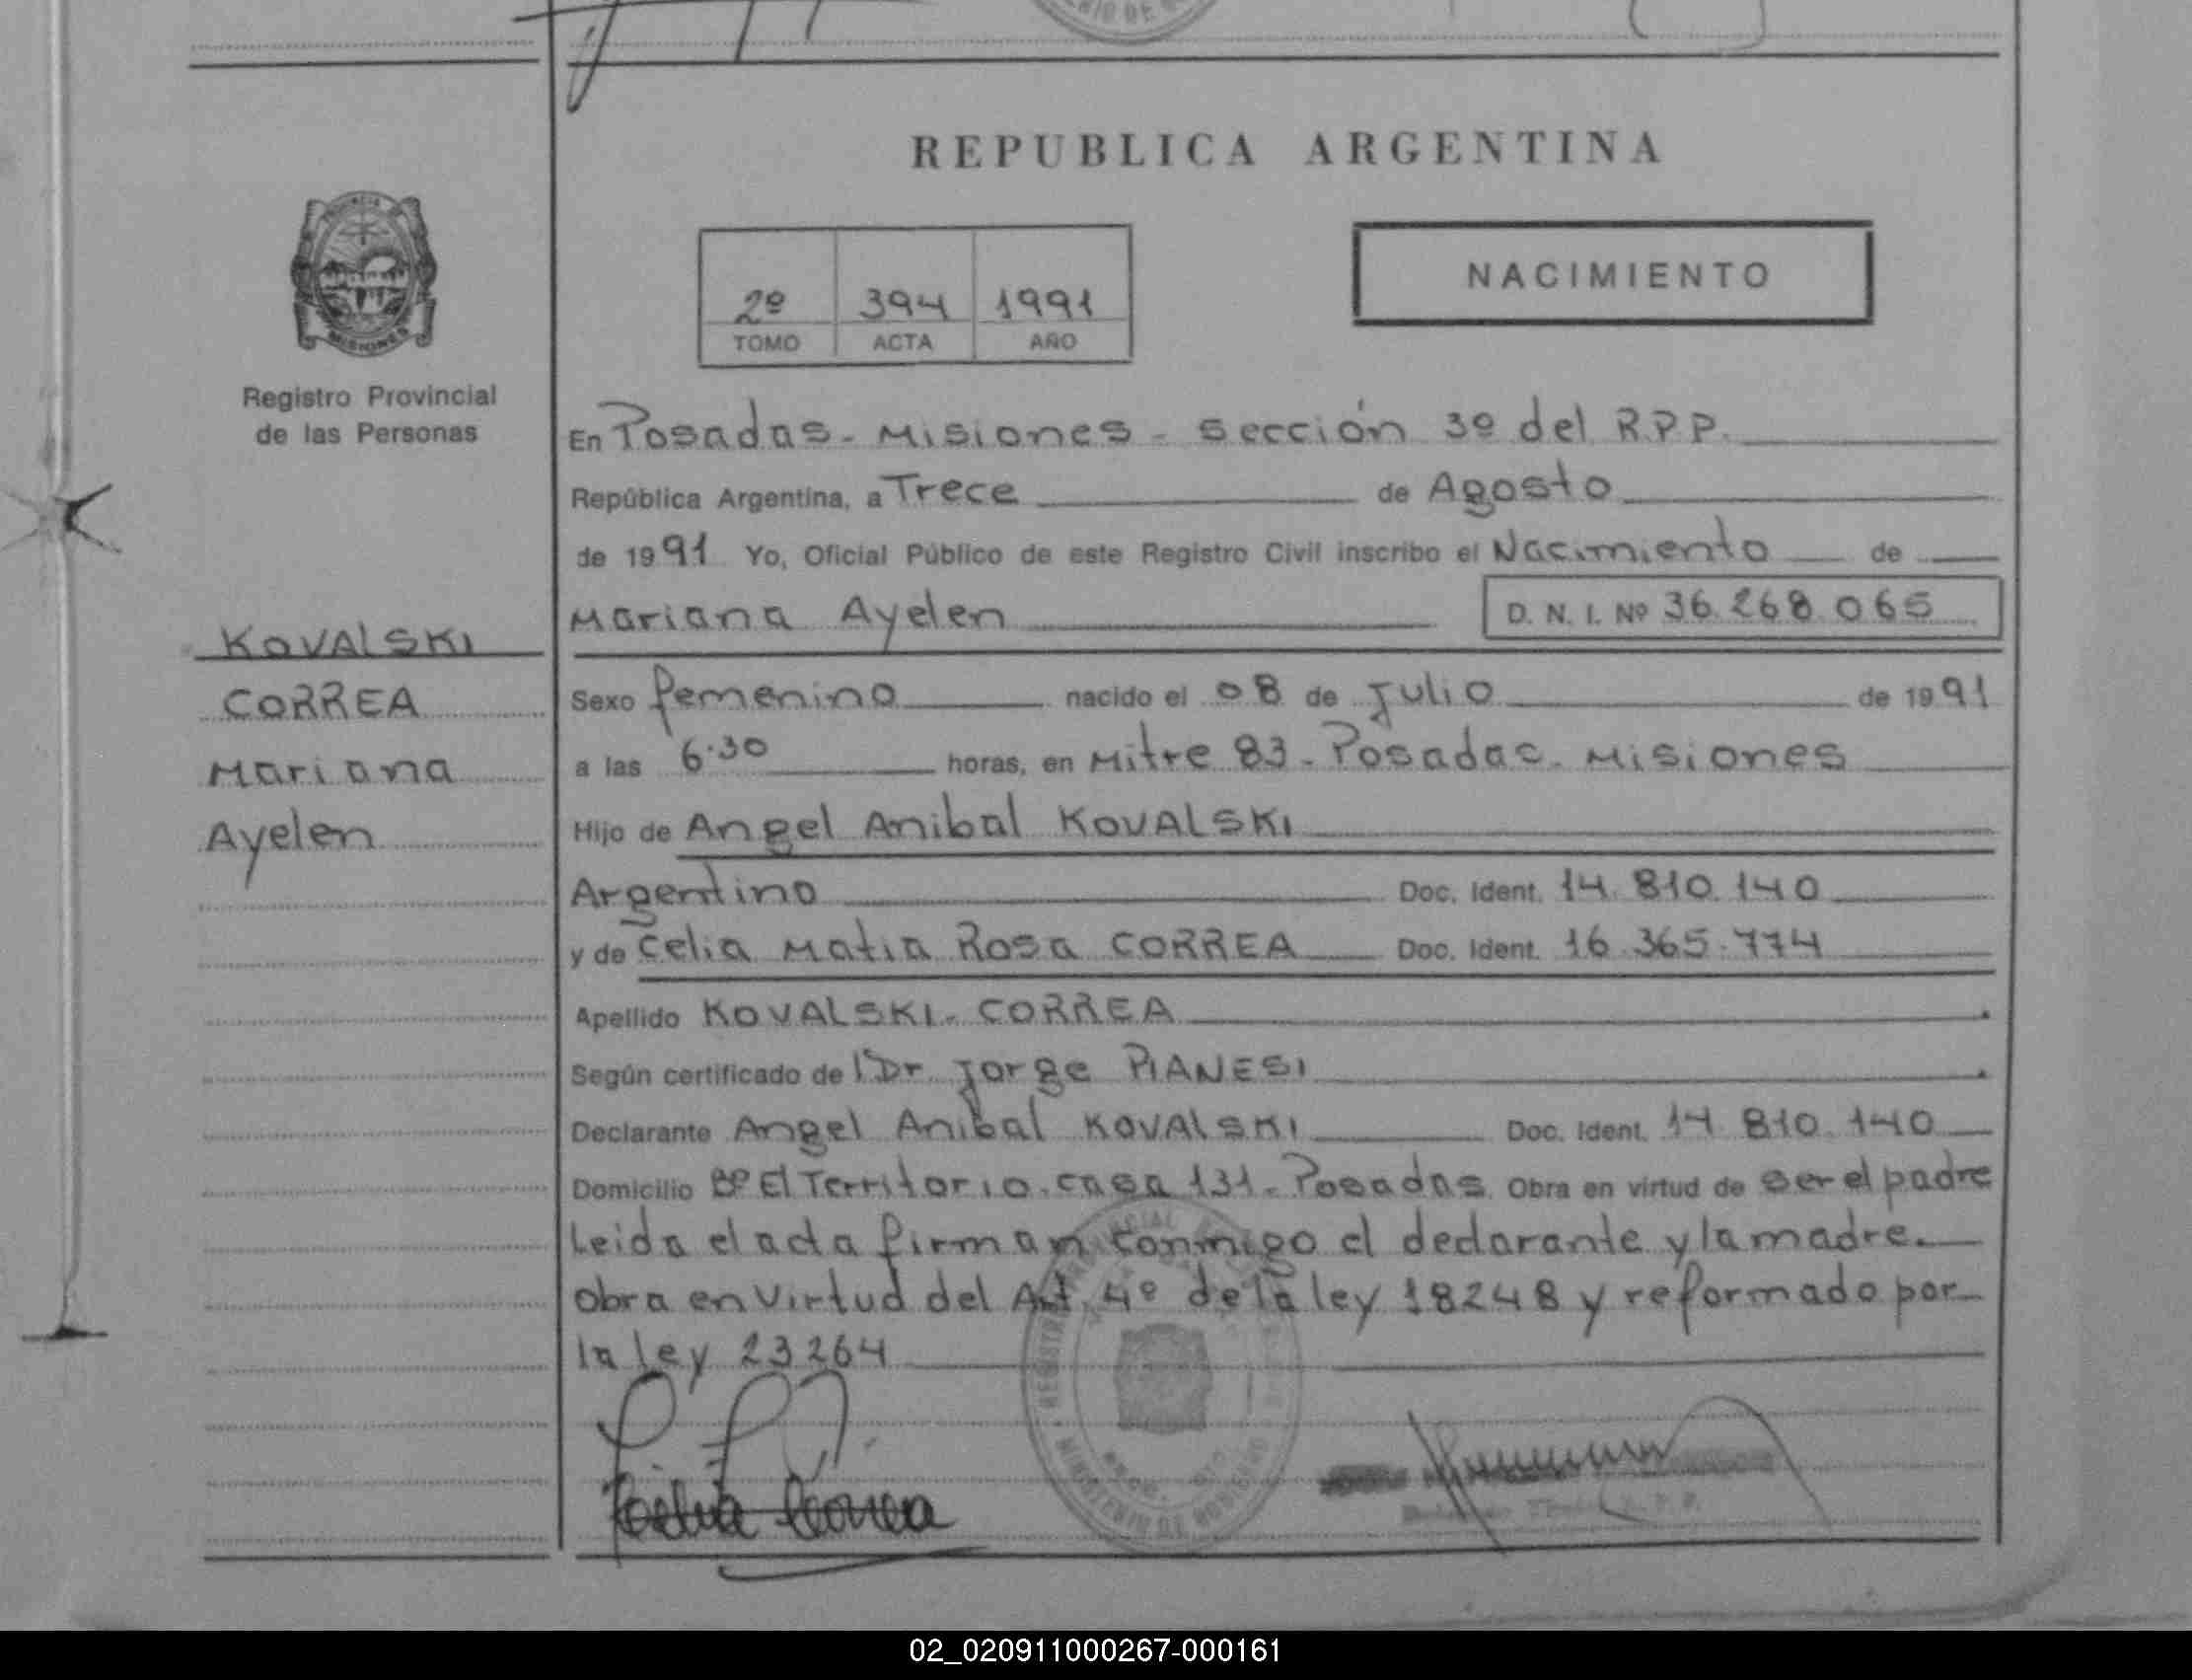 REPUBLICA ARGENTINA
NACIMIENTO
2º 394 1991
TOMO ACTA AÑO
MISIONES
Registro Provincial
de las Personas
KOVALSKI
CORREA
Mariana
Ayelen
En Posadas - Misiones - Sección 3º del R.P.P.
República Argentina, a Trece de Agosto
de 1991 Yo, Oficial Público de este Registro Civil inscribo el Nacimiento de
Mariana Ayelen D. N. I. Nº 36.268.065
Sexo femenino nacido el 08 de Julio de 1991
a las 6.30 horas, en Mitre 83 - Posadas - Misiones
Hijo de Angel Anibal KOVALSKI
Argentino Doc. Ident. 14.810.140
y de Celia Matia Rosa CORREA Doc. Ident. 16.365.774
Apellido KOVALSKI - CORREA
Según certificado de Dr Jorge PIANESI
Declarante Angel Anibal KOVALSKI Doc. Ident. 14.810.140
Domicilio Bº El Territorio. casa 131 - Posadas Obra en virtud de ser el padre
Leida el acta firman conmigo el declarante y la madre.
Obra en virtud del Art. 4º de la ley 18248 y reformado por
la ley 23264
MINISTERIO DE GOBIERNO
02_020911000267-000161